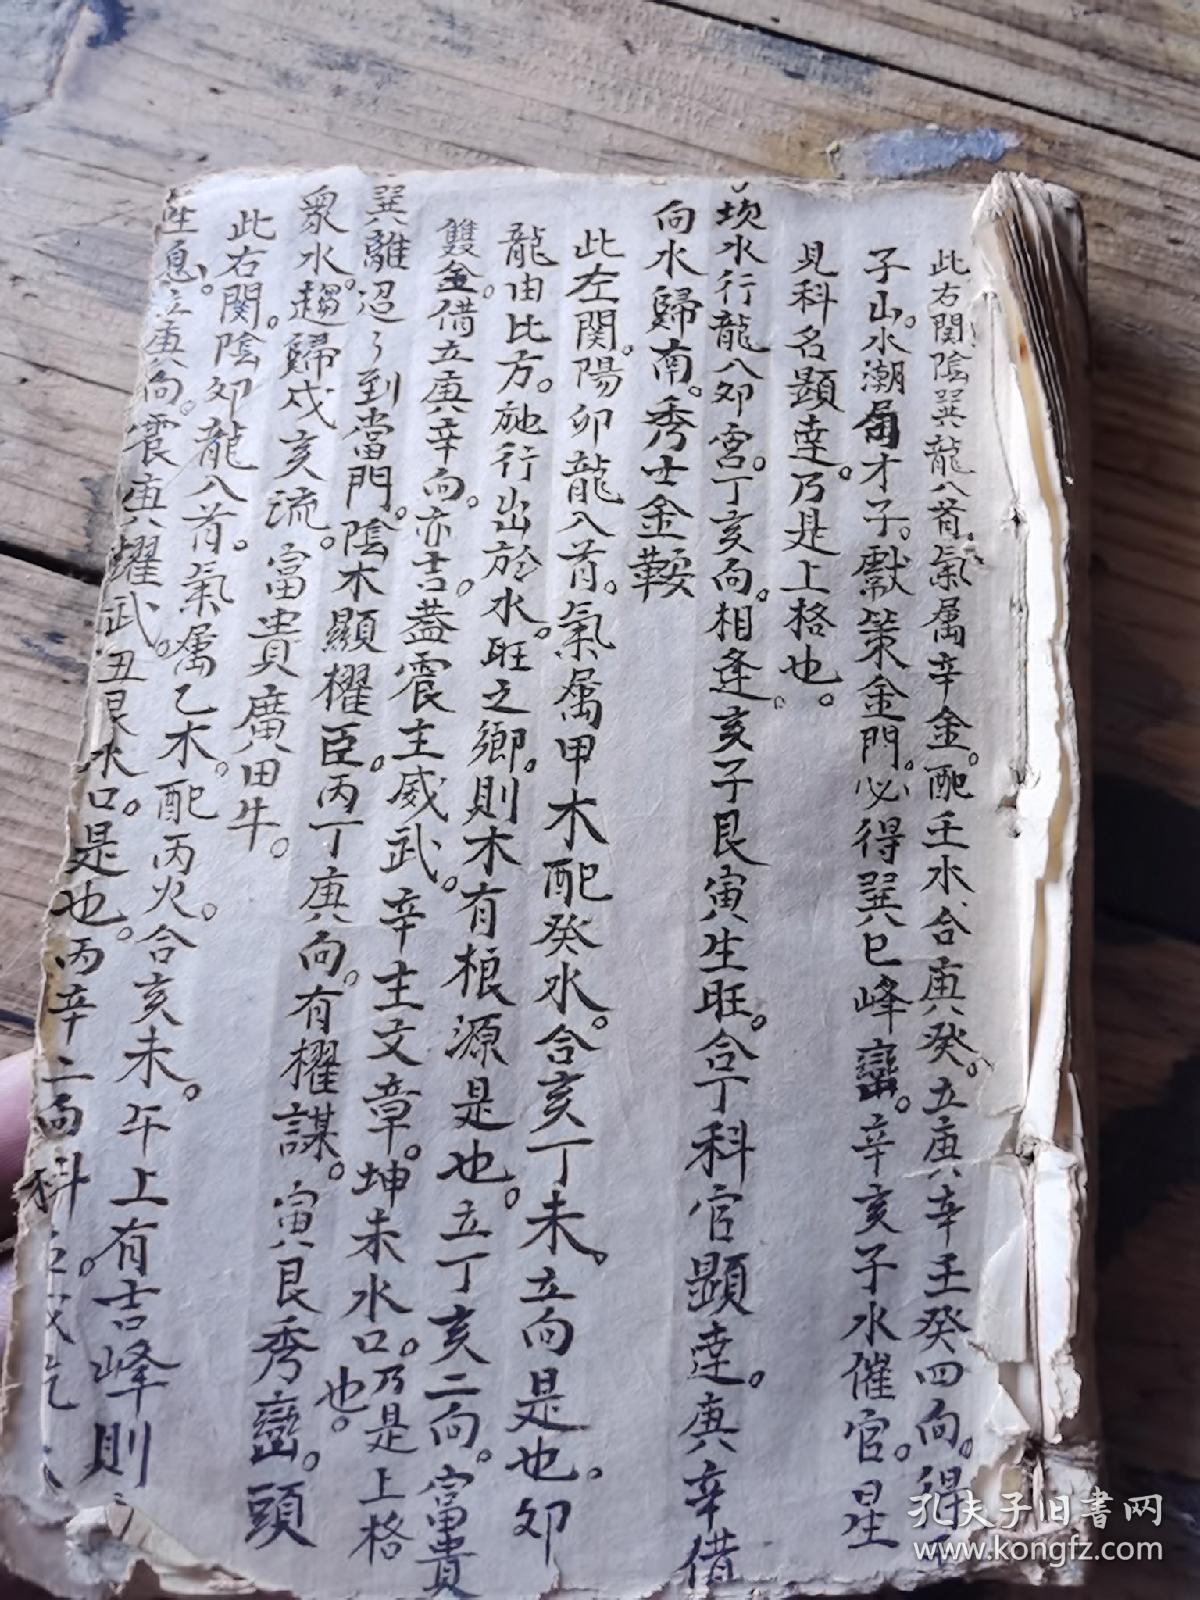 此右関陰巽龍入首氣属辛金。配壬水合庚癸。立庚辛壬癸四向。得
子山。水潮局才子。獻策金門。必得巽巳峰巒。辛亥子水催官。星
見科名顕達。乃是上格也。
坎水行龍入卯宮。丁亥向。相逢亥子艮寅生旺。合丁科官顕達。庚辛借
向水歸南。秀士金鞍
此左関。陽卯龍入首。氣属甲木配癸水。合亥丁未。立向是也。卯
龍由比方。施行出於水。旺之鄉。則木有根源是也。立丁亥二向。富貴
雙金。借立庚辛向。亦吉。蓋震主威武。辛主文章。坤未水口。乃是上格
也。
巽離迢々到當門。陰木顯櫂臣。丙丁庚向。有櫂謀。寅艮秀巒。頭
衆水。趨歸戌亥流。富貴廣田牛。
此右関。陰卯龍入首。氣属乙木。配丙火。合亥未。午上有吉峰則
生息。立庚向。震庚耀武。丑艮水口。是也。丙辛二向科
孔夫子旧书网
www.kongfz.com